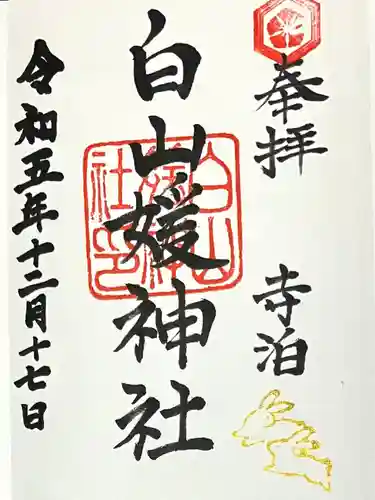 奉拝
寺泊
白山媛神社
白山媛神社印
令和五年十二月十七日